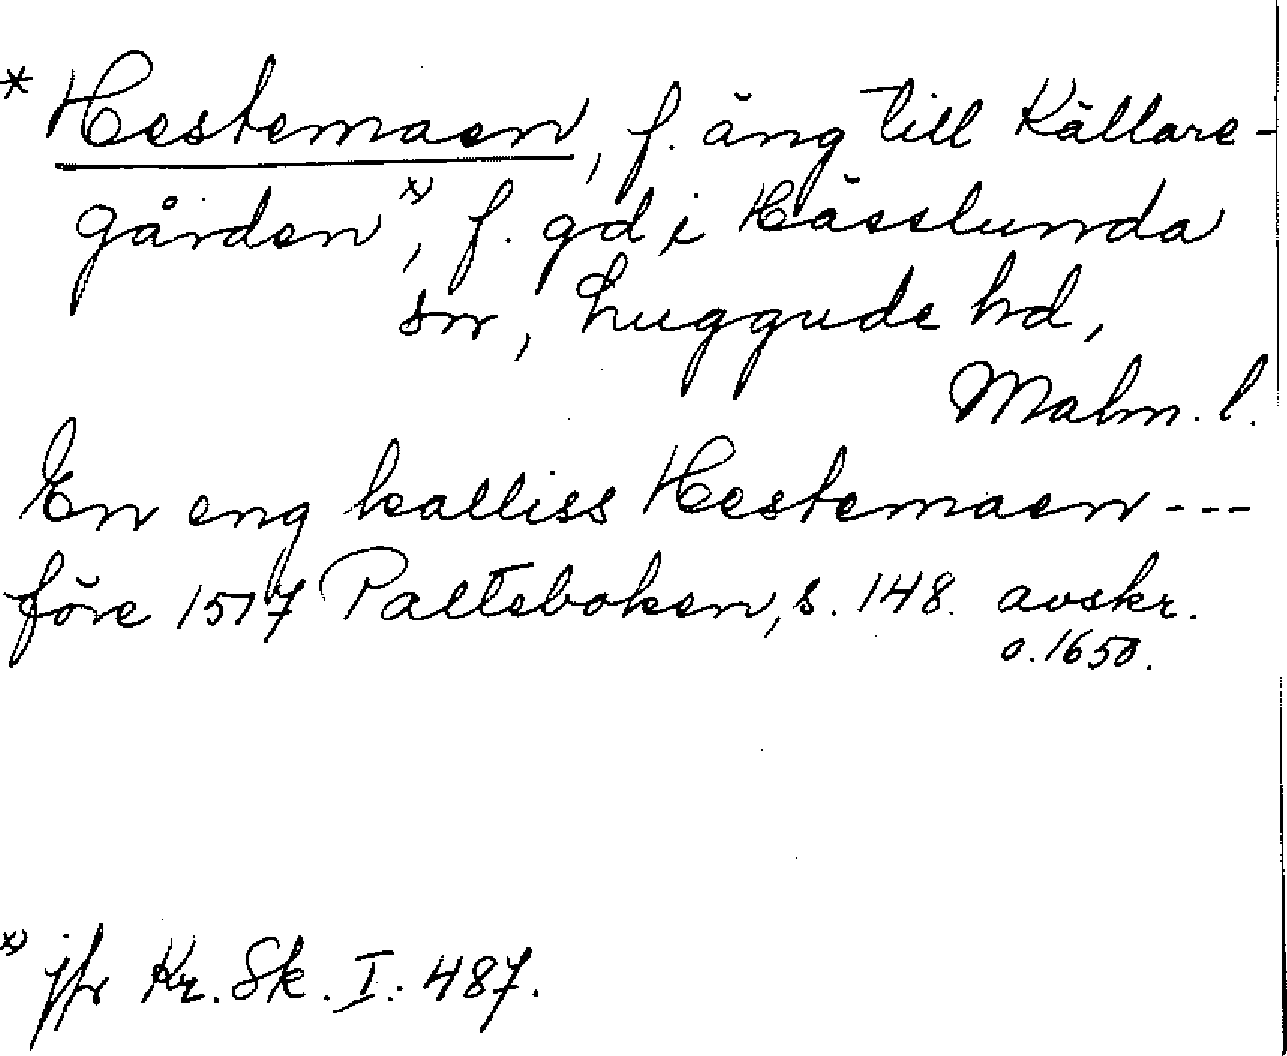 * Hestemaen, f. äng till Källare-
gården x), f. gd i Kässlunda
sn, Luggude hd,
Malm. l.
En eng kalliss Hestemaen ---
före 1517 Palteboken, s. 148. avskr.
o. 1650.
x) jfr Kr. Sk. I: 487.